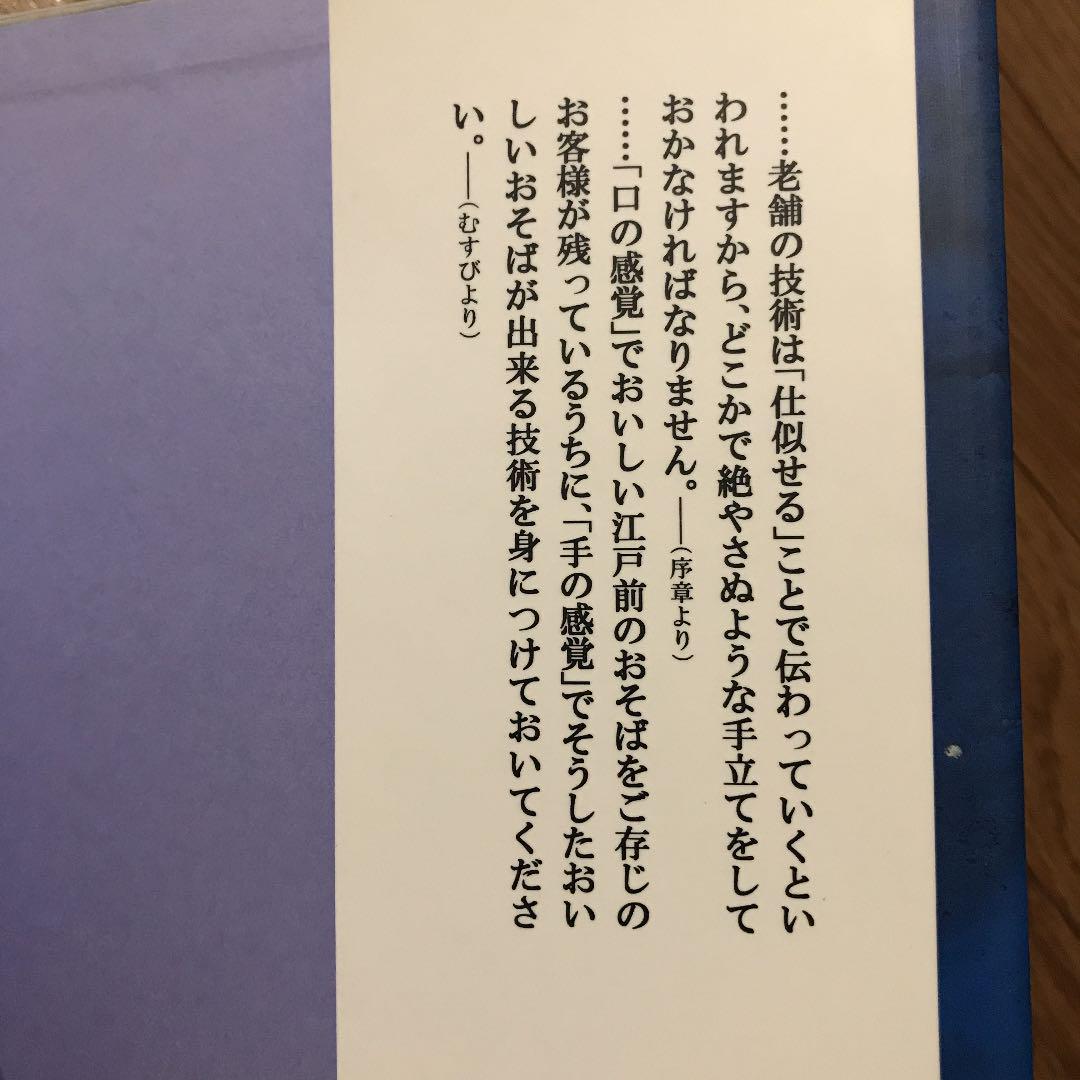 ……老舗の技術は「仕似せる」ことで伝わっていくとい
われますから、どこかで絶やさぬような手立てをして
おかなければなりません。――（序章より）
……「口の感覚」でおいしい江戸前のおそばをご存じの
お客様が残っているうちに、「手の感覚」でそうしたおい
しいおそばが出来る技術を身につけておいてくださ
い。――（むすびより）